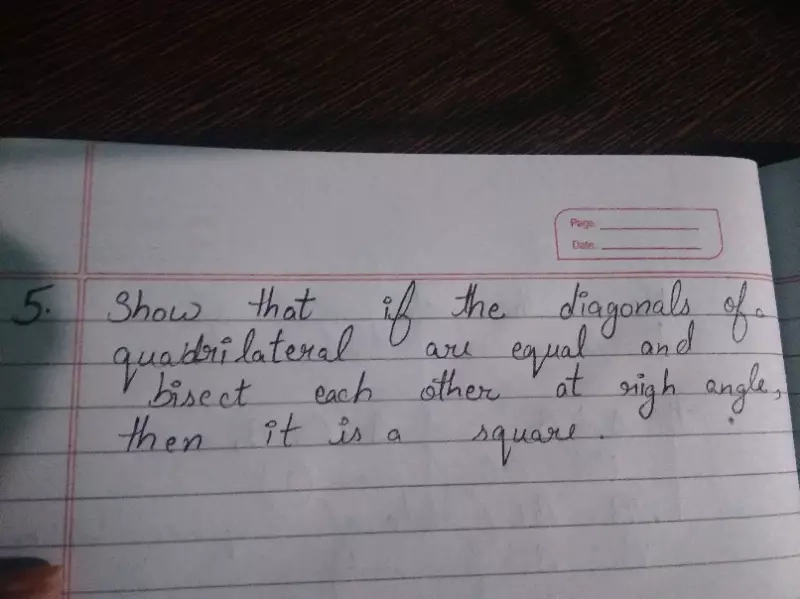 Page
Date
5. Show that if the diagonals of a
quadrilateral are equal and
bisect each other at righ angle,
then it is a square.